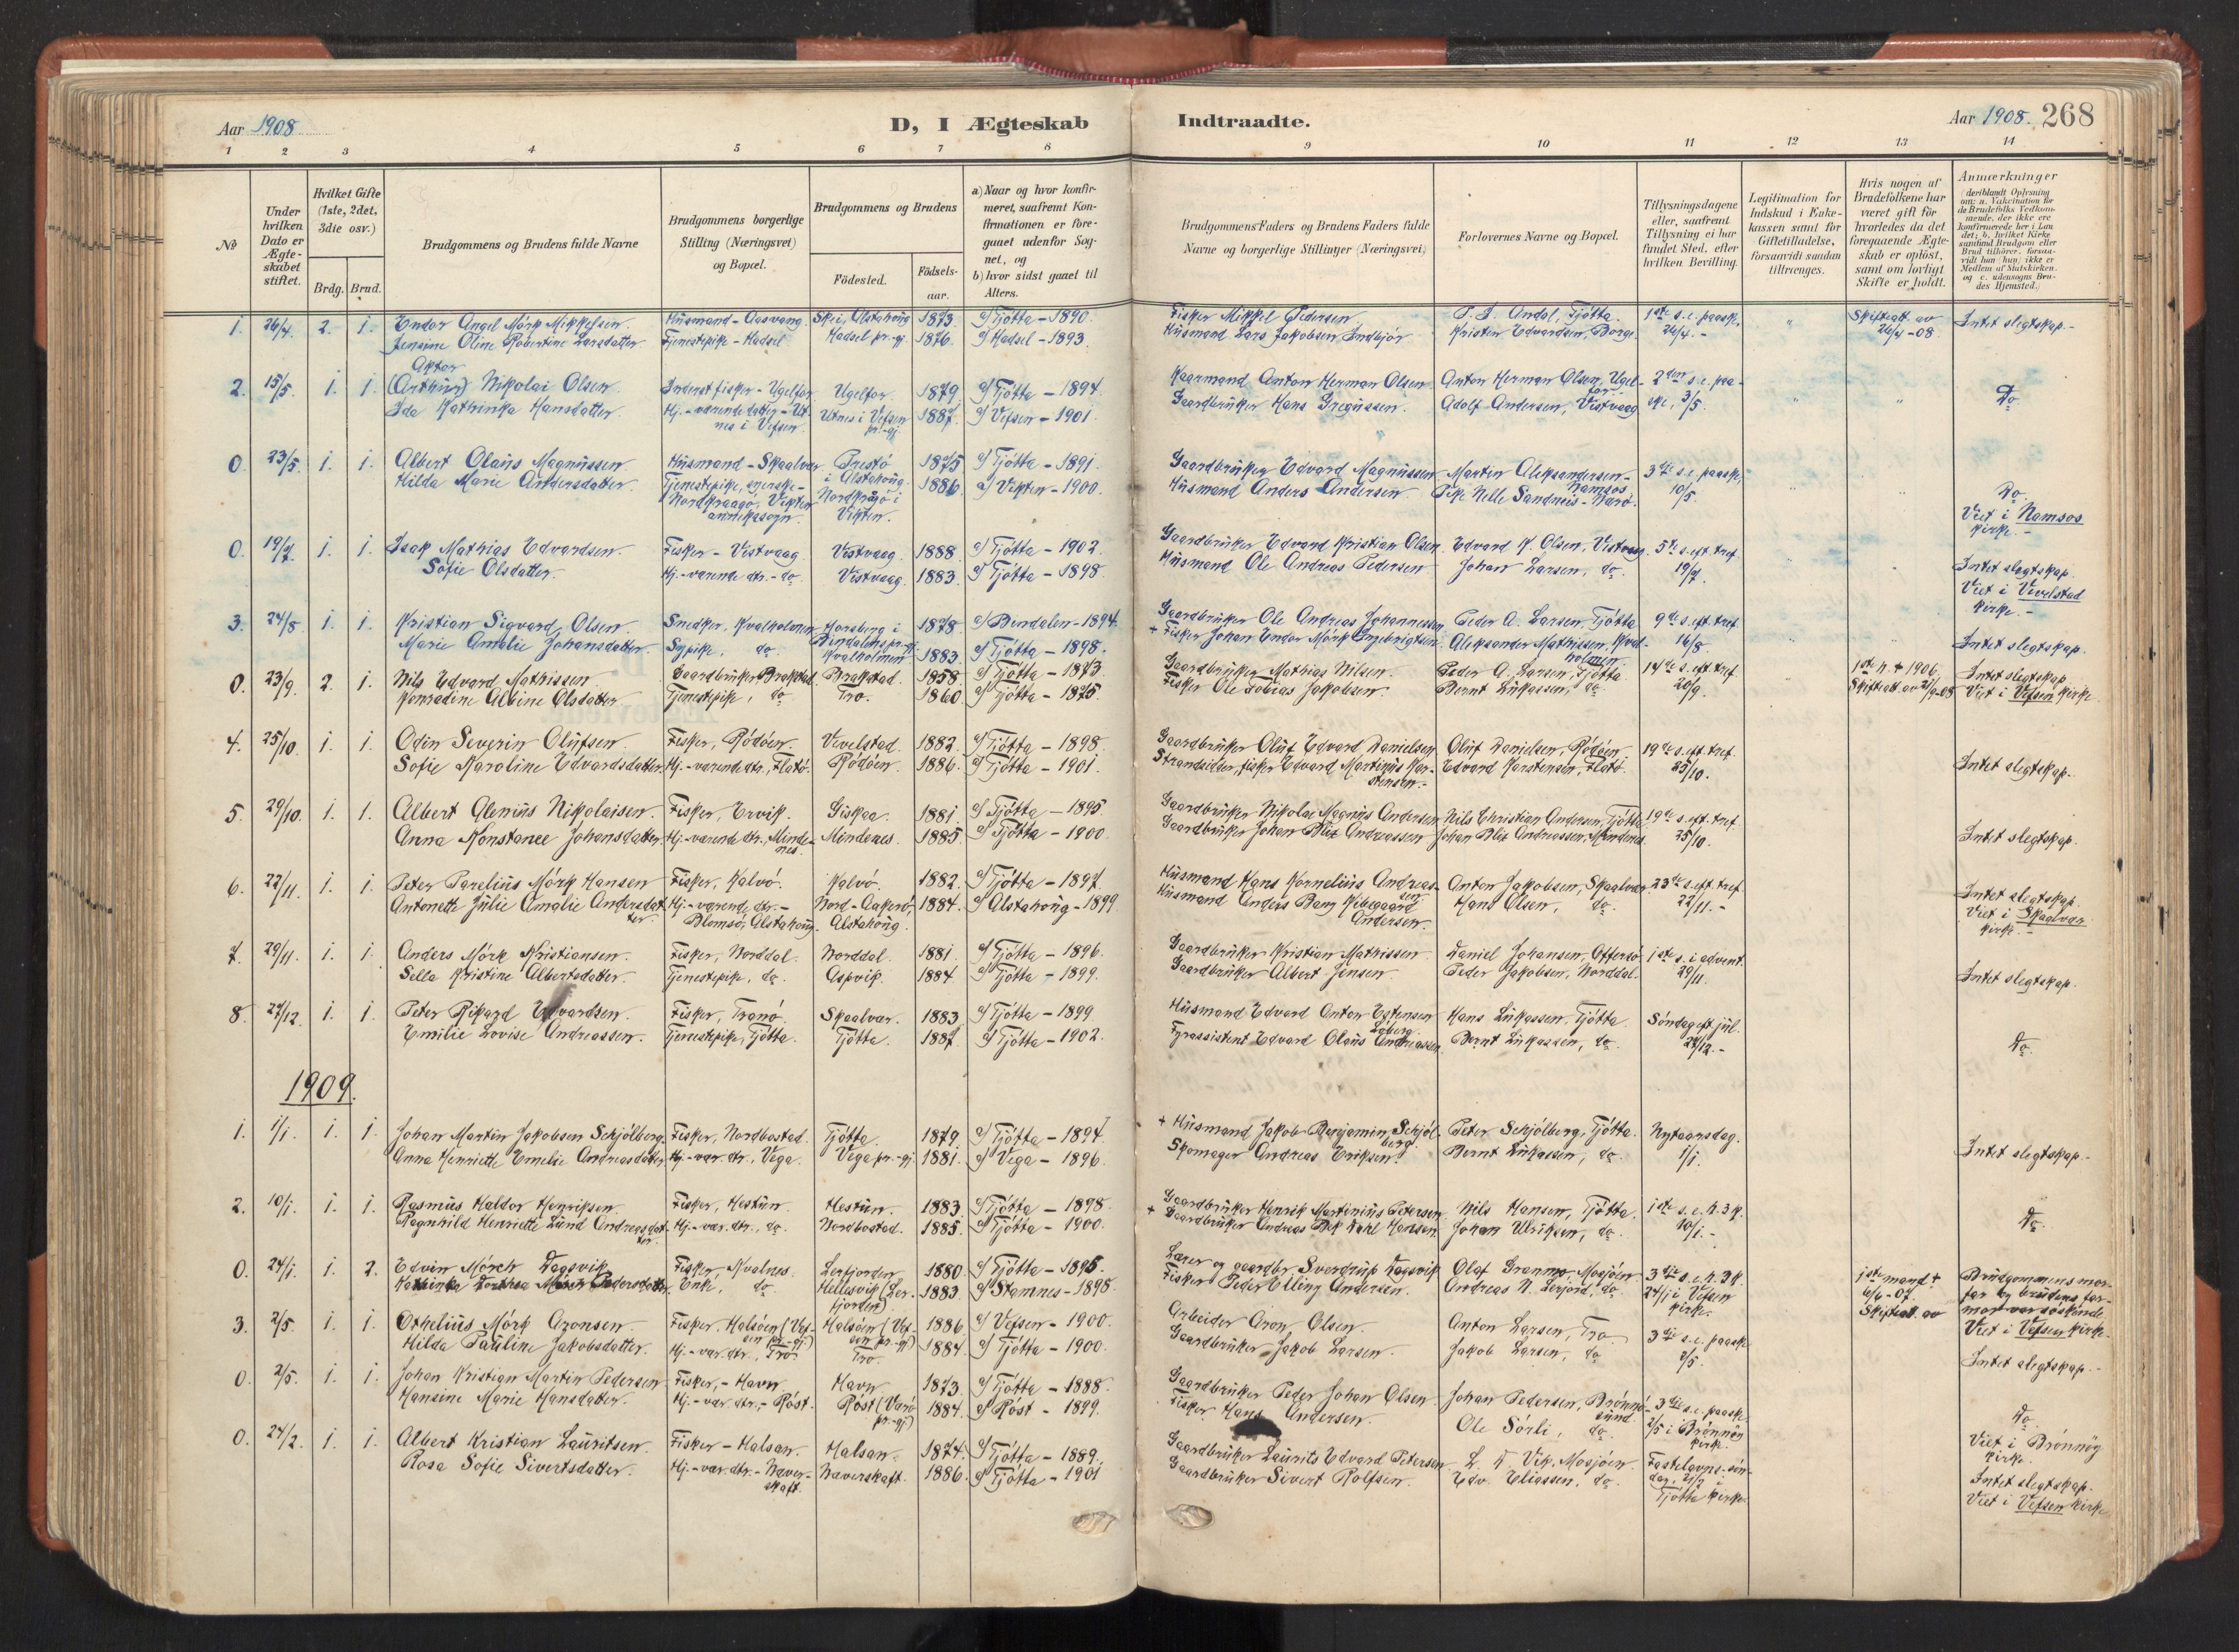 Aar 1908
D, I Ægteskab
Indtraadte.
Aar 1908. 268
1 2 3 4 5 6 7 8 9 10 11 12 13 14
No
Under hvilken Dato er Ægteskabet stiftet.
Hvilket Gifte (1ste, 2det, 3die osv.)
Brdg. Brud.
Brudgommens og Brudens fulde Navne
Brudgommens borgerlige Stilling (Næringsvei) og Bopæl.
Brudgommens og Brudens
Fødested.
Fødselsaar.
a) Naar og hvor konfirmeret, saafremt Konfirmationen er foregaaet udenfor Sognet, og
b) hvor sidst gaaet til Alters.
Brudgommens Faders og Brudens Faders fulde Navne og borgerlige Stillinger (Næringsvei)
Forlovernes Navne og Bopæl.
Tillysningsdagene eller, saafremt Tillysning ei har fundet Sted, efter hvilken Bevilling.
Legitimation for Indskud i Enkekassen samt for Giftetilladelse, forsaavidt saadan tiltrænges.
Hvis nogen af Brudefolkene har været gift før hvorledes da det foregaaende Ægteskab er opløst, samt om lovligt Skifte er holdt.
Anmærkninger
1. 26/4. 2. 1. Endor Angel Mørk Mikkelsen. Husmand - Aasvang. Skei, Alstahoug 1873. a) Tjøtta - 1890. Fisker Mikkel Pedersen. Andal, Tjøtta. 1ste s.e. paaske, " Skifteatt. av Intet slegtskap. -
Jensine Oline Robertine Larsdatter Tjenestepike - Hadsel Hadsel pr.gj. 1876. a) Hadsel - 1893. Husmand Lars Jakobsen, Indbjør Kristen Edvardsen, Borge. 26/4. - 26/4 - 08
Aktor
2. 15/5. 1. 1. (Arthur) Nikolai Olsen. Inderst fisker - Ugelfor Ugelfor. 1879. a) Tjøtta - 1894. Kaarmand Anton Herman Olsen Anton Herman Olsen, Ugelfor. 2den s.e. paa- " " Do
Ida Kathinka Hansdatter Hj.-værende datter - Utnes i Vefsen. Utnes i Vefsen pr.-gj. 1887. a) Vefsen - 1901. Gaardbruker Hans Gregussen. Adolf Andersen, Vistvaag ske, 3/5.
0. 23/5. 1. 1. Albert Olaus Magnussen. Husmand - Skaalvær Prestø i Alstahoug. 1875 a) Tjøtta - 1891. Gaardbruker Edvard Magnussen Martin Aleksandersen - Namsos 3die s.e. paaske,
Hilda Marie Andersdatter. Tjenestepike, Nordkraagø, Vikten annekssogn. i Vikten. 1886. a) Vikten - 1900. Husmand Anders Andersen Pike Nelle Sandnes - Nærø. 10/5. Do. Viet i Namsos kirke. -
0. 19/7. 1. 1. Isak Mathias Edvardsen. Fisker - Vistvaag Vistvaag. 1888 a) Tjøtta - 1902. Gaardbruker Edvard Kristian Olsen. Edvard K. Olsen, Vistvaag. 5te s. eft. tref.
Sofie Olsdatter. Hj.-værende dtr. - do Vistvaag. 1883. a) Tjøtta - 1898. Husmand Ole Andreas Pedersen Johan Larsen, do. 19/7. Intet slegtskap. Viet i Vevelstad kirke. -
3. 24/8 1. 1. Kristian Sigvard Olsen. Snedker, Kvalholmen Horsberg i Bindalens pr-gj. 1878. a) Bindalen - 1894. Gaardbruker Ole Andreas Johannessen Peder A. Larsen, Tjøtta. 9de s. eft. tref.
Marie Amalie Johansdatter. Sypike, do. Kvalholmen. 1883. a) Tjøtta - 1898. + Fisker Johan Endor Mørk Ingebrigtsen. Aleksander Mathissen, Kvalholmen. 16/8. Intet slegtskap.
0. 23/9. 2. 1. Nils Edvard Mathissen. Gaardbruker Brakstad. Brakstad. 1858. a) Tjøtta - 1873. Gaardbruker Mathias Nilsen. Peder A. Larsen, Tjøtta. 14de s. eft. tref. 1ste h. + 1906. Intet slegtskap
Konradine Albine Olsdatter. Tjenestepike, do Tro. 1860. a) Tjøtta - 1875. Fisker Ole Tobias Jakobsen. Bernt Lukassen, do 20/9. Skifteatt. av 21/9-08 Viet i Vefsen kirke
4. 25/10. 1. 1. Odin Severin Olufsen. Fisker, Rødøen. Vevelstad. 1882. a) Tjøtta - 1898. Gaardbruker Oluf Edvard Danielsen Oluf Danielsen, Rødøen 19de s. eft. tref.
Sofie Karoline Edvardsdatter. Hj.-værende dtr., Flatø. Rødøen. 1886. a) Tjøtta - 1901. Strandsidder, fisker Edvard Martinus Karstensen. - Edvard Karstensen, Flatø. 25/10. Intet slegtskap.
5. 29/10. 1. 1. Albert Glenius Nikolaisen. Fisker, Ervik. Giskaa. 1881. a) Tjøtta - 1895 Gaardbruker Nikolai Magnus Andersen Nils Christian Andersen, Tjøtta 19de s. eft. tref.
Anna Konstance Johansdatter. Hj.-værende dtr., Mindenes. Mindenes. 1885. a) Tjøtta - 1900. Gaardbruker Johan Blix Andreassen Johan Blix Andreassen, Mindenes. 25/10. Intet slegtskap.
6. 22/11. 1. 1. Peter Parelius Mørk Hansen Fisker, Kalvø. Kalvø. 1882. a) Tjøtta - 1897. Husmand Hans Kornelius Andreassen Anton Jakobsen, Skaalvær 23de s. eft. tref.
Antonette Julie Amalie Andersdatter Hj.-værende dtr. - Blomsø, Alstahoug. Nord-Aakerø, Alstahoug. 1884. a) Alstahoug - 1899. Husmand Anders Bang Andersen. Hans Olsen, do. 22/11. - Intet slegtskap. Viet i Skaalvær kirke. -
7. 29/11. 1. 1. Anders Mørk Kristiansen. Fisker, Norddal. Norddal. 1881. a) Tjøtta - 1896. Gaardbruker Kristian Mathissen. Daniel Johansen, Offersø 1ste s. i advent.
Sella Kristine Albertsdatter. Tjenestepike, do. Aspvik. 1884. a) Tjøtta - 1899. Gaardbruker Albert Jensen. Peder Jakobsen, Norddal. 29/11. Intet slegtskap.
8. 27/12. 1. 1. Peter Rikard Edvardsen. Fisker, Tranø. Skaalvær. 1883 a) Tjøtta - 1899. Husmand Edvard Anton Estensen Hans Lukassen, Tjøtta. Søndag eft. jul.
Emilie Lovise Andreassen. Tjenestepike, Tjøtta. Tjøtta. 1887. a) Tjøtta - 1902. Fyrassistent Edvard Olaus Andreassen. Bernt Lukassen, do. 27/12. - Do.
1909.
1. 1/1. 1. 1. Johan Martin Jakobsen Schjølberg. Fisker, Nordbostad. Tjøtta. 1879. a) Tjøtta - 1894. + Husmand Jakob Benjamin Schjølberg Peter Schjølberg, Tjøtta. Nytaarsdag.
Anna Henriette Emelie Andreasdatter Hj.-vær. dtr., Vega. Vega pr.-gj. 1881. a) Vega - 1896. Skomager Andreas Eriksen. Bernt Lukassen, do. 1/1. Intet slegtskap. -
2. 10/1. 1. 1. Rasmus Haldor Henriksen. Fisker, Hestun. Hestun. 1883. a) Tjøtta - 1898. Gaardbruker Henrik Martinius Petersen Nils Hansen, Tjøtta. 1ste s. e. h. 3 k.
Ragnhild Henriette Lund Andreasdatter. Hj.-vær. dtr., do. Nordbostad. 1885. a) Tjøtta - 1900. + Gaardbruker Andreas Dahl Hansen. Johan Ulriksen, do. 10/1. - Do.
0. 24/1. 1. 2. Edvin Mørch Dagsvik Fisker, Kvalnes. Lerfjorden 1880. a) Tjøtta - 1895. Lærer og gaardbr. Sverdrup Dagsvik Olaf Granmo, Mosjøen 3die s. e. h. 3 k. 1ste mand + Brudgommens mor-
Kathinka Dorthea Pedersdatter Enke, do. Hellesvik (Lerfjorden) 1883. a) Stamnes - 1898. Fisker Peder Elling Andersen. Andreas N. Lerfjord, do. 24/1 i Vefsen kirke. 6/6 - 07. Skifteatt. av far og brudens farmor var søskende. Viet i Vefsen kirke.
3. 2/5. 1. 1. Othelius Mørk Aronsen. Fisker, Halsøen (Vefsen pr-gj.) Halsøen (Vefsen pr-gj) 1886. a) Vefsen - 1900. Arbeider Aron Olsen. Anton Larsen, Tro 3die s. e. paaske
Hilda Pauline Jakobsdatter. Hj.-vær. dtr., Tro Tro. 1884. a) Tjøtta - 1900. Gaardbruker Jakob Larsen. Jakob Larsen, do 2/5. Intet slegtskap. -
0. 2/5. 1. 1. Johan Kristian Martin Pedersen Fisker, - Havn. Havn 1873. a) Tjøtta - 1888. Gaardbruker Peder Johan Olsen Johan Pedersen, Brønnøsund. 3die s. e. paaske
Hansine Marie Hansdatter. Hj.-vær. dtr., - Røst. Røst (Værø pr.-gj.) 1884. a) Røst - 1899. Fisker Hans Andersen. Ole Sørli, do. 2/5 i Brønnøy kirke. Do. Viet i Brønnøy kirke.
0. 24/2. 1. 1. Albert Kristian Lauritsen. Fisker - Halsan. Halsan. 1874. a) Tjøtta - 1889. Gaardbruker Laurits Edvard Petersen Vik, Mosjøen. Fastelavns-søn-
Rosa Sofie Sivertsdatter. Hj.-vær. dtr. - Næverskaft. Næverskaft. 1886. a) Tjøtta - 1901 Gaardbruker Sivert Rolfsen. Edv. Eliassen, do. dag, 21/2 i Tjøtta kirke. Intet slegtskap. Viet i Vefsen kirke